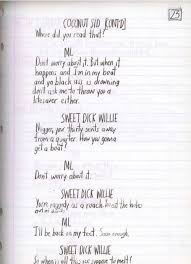 23
COCONUT SID (CONT'D)
Where did you read that?
ML
Don't worry about it. But when it
happens and I'm in my boat
and yo black ass is drowning
don't ask me to throw you a
lifesaver either.
SWEET DICK WILLIE
Nigger, you thirty cents away
from a quarter. How you gonna
get a boat?
ML
Don't worry about it.
SWEET DICK WILLIE
raggedy as a roach. eat the holes
ML
I'll be back on my feet. Soon enough.
SWEET DICK WILLIE
So when is all this suppose to melt?